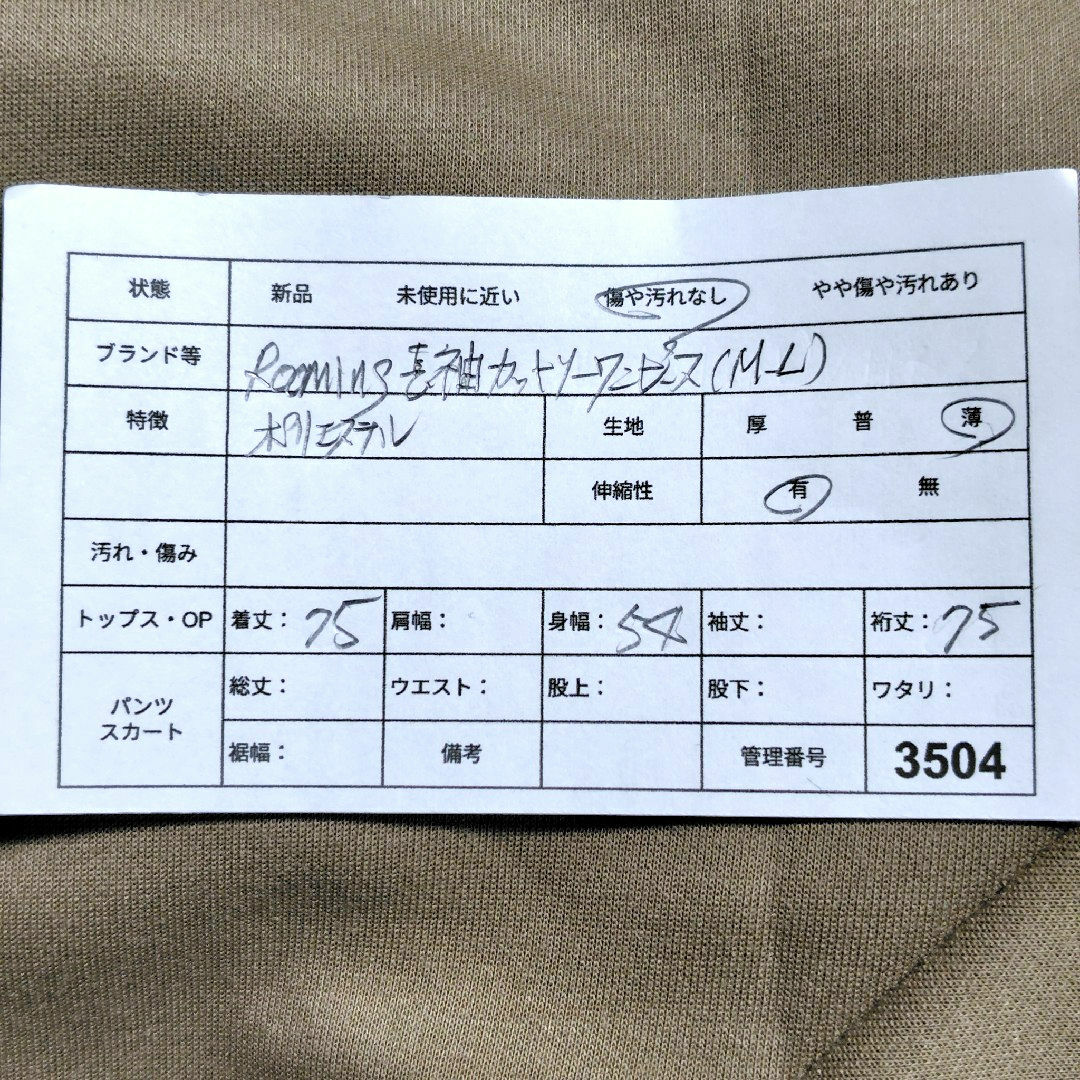 状態 新品 未使用に近い 傷や汚れなし やや傷や汚れあり
ブランド等 Roaming 長袖カットソーワンピース(M-L)
特徴 ポリエステル 生地 厚 普 薄
伸縮性 有 無
汚れ・傷み
トップス・OP 着丈: 75 肩幅: 身幅: 54 袖丈: 裄丈: 75
パンツ スカート 総丈: ウエスト: 股上: 股下: ワタリ:
裾幅: 備考 管理番号 3504